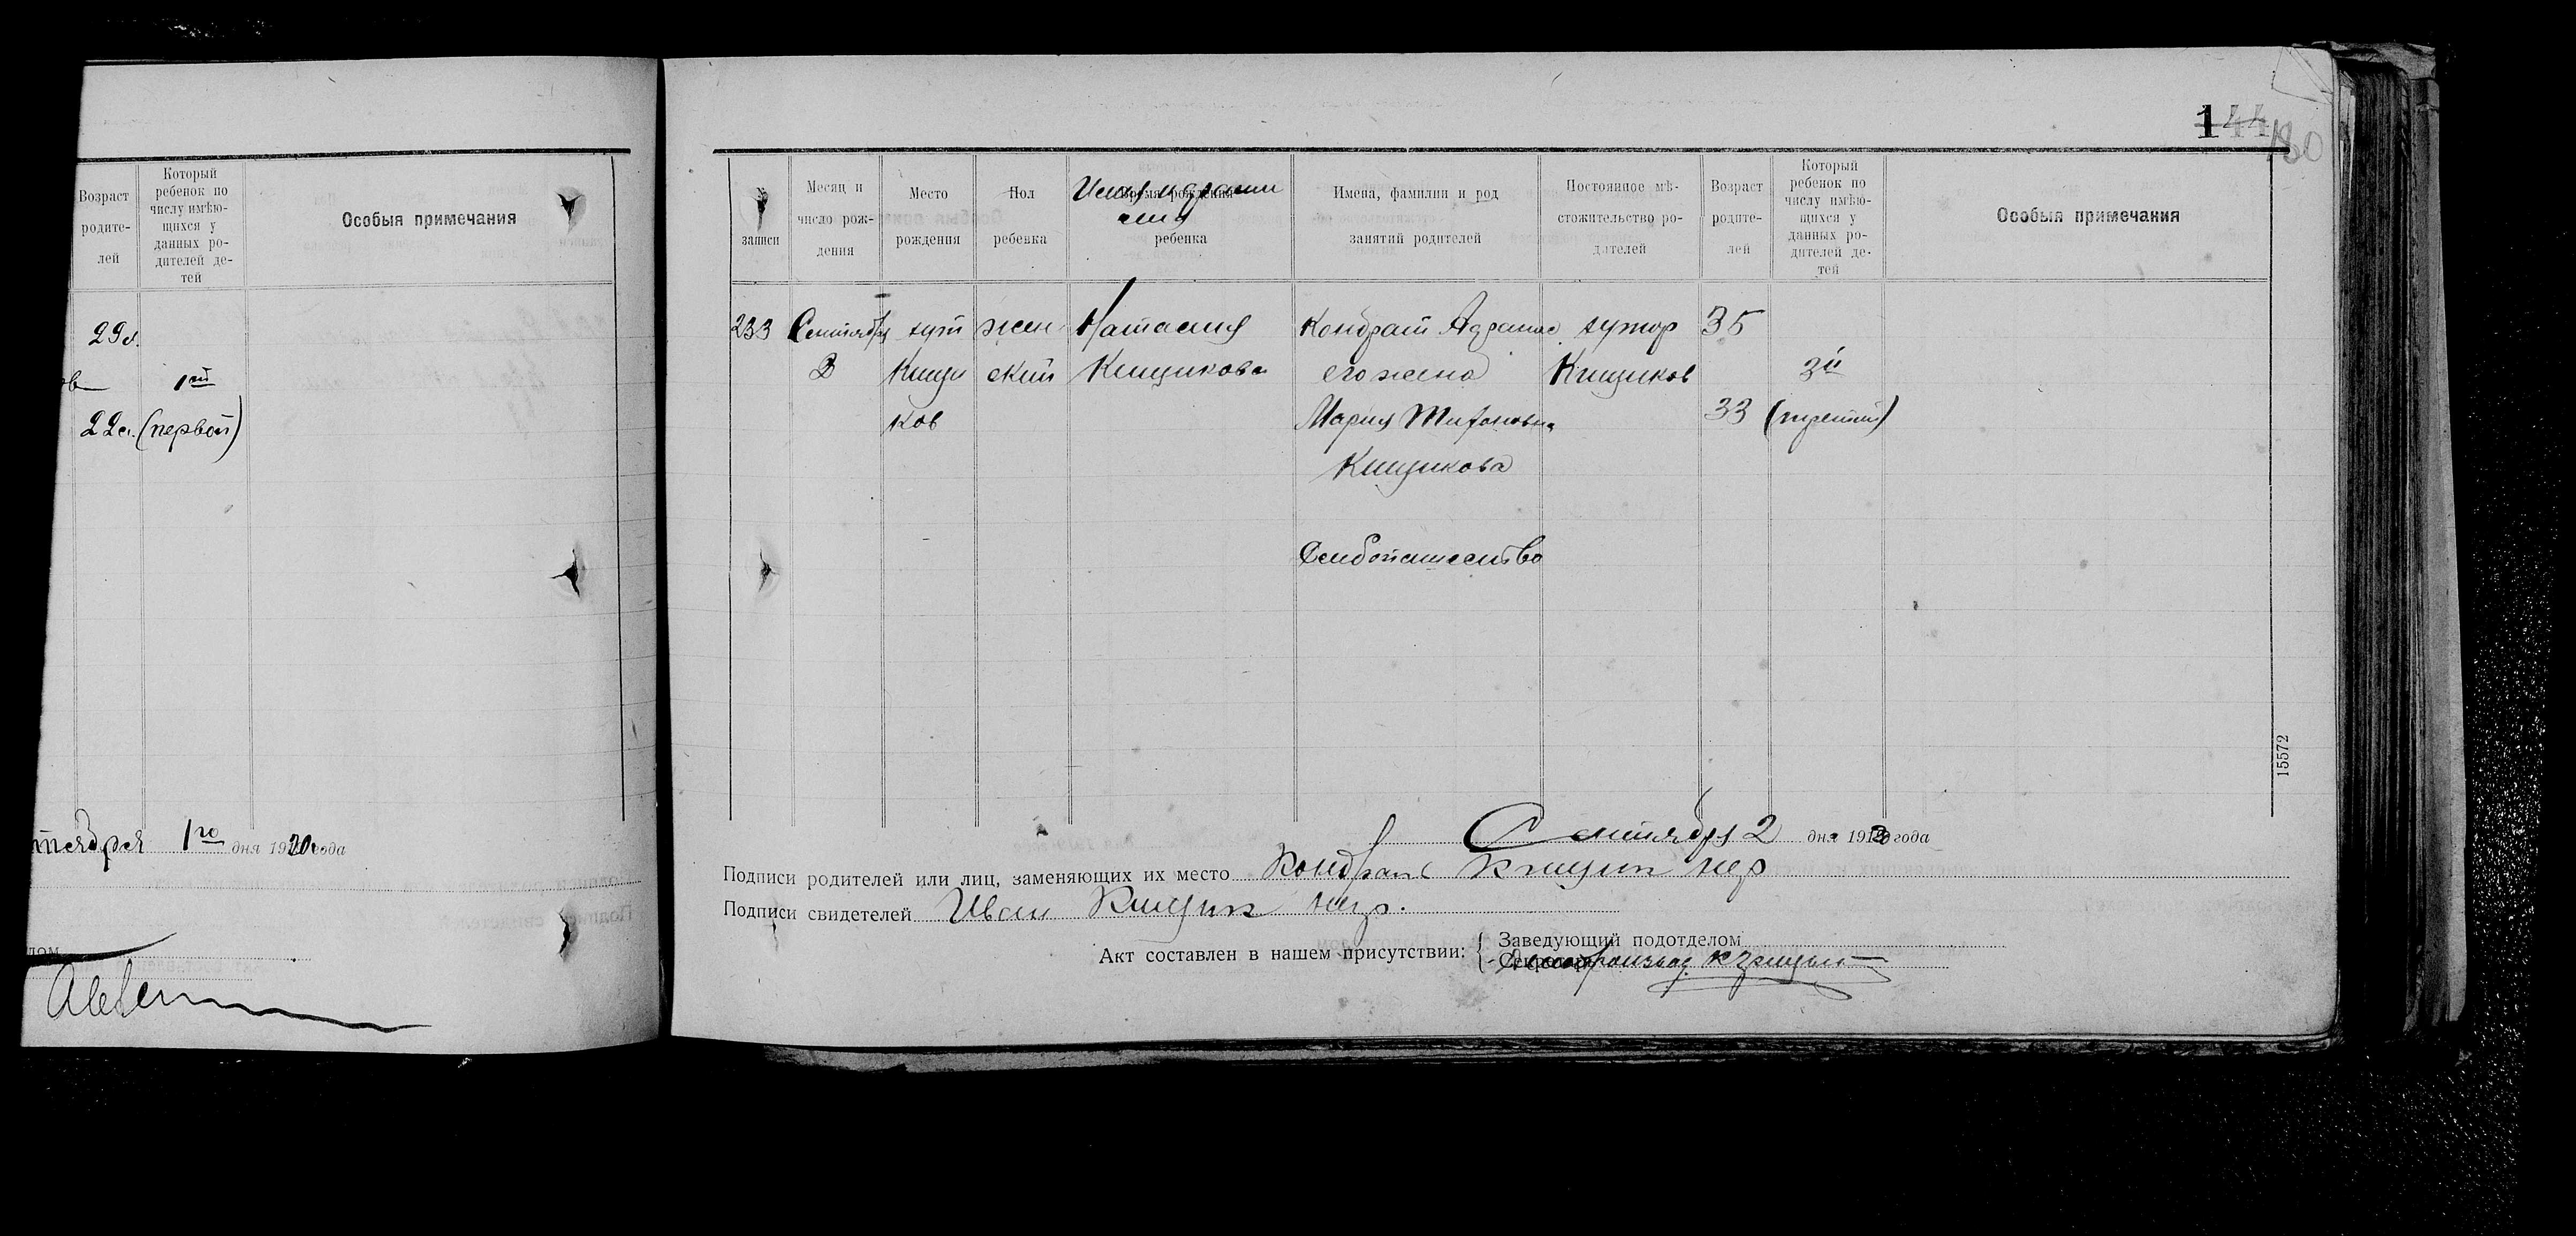 Возраст родите- лей
Который ребенок по числу имѣю- щихся у данных ро- дителей де- тей
Особыя примечания
29 л.
1ый
22 л. (первой)
1го дня 1920 года
144
180
№ записи
Месяц и число рож- дения
Место рождения
Пол ребенка
Имя и фами лия
Время рождения ребенка
Имена, фамилии и род занятий родителей
Постоянное мѣ- стожительство ро- дителей
Возраст родите- лей
Который ребенок по числу имѣю- щихся у данных ро- дителей де- тей
Особыя примечания
233
Сентября
2
хут
Кищи
ков
жен
ский
Натасия
Кищикова
Кондрат
его жена
Мария
Кищикова
хутор
Кищиков
35
33
3й
(третий)
15572
Сентября 2 дня 1920 года
Подписи родителей или лиц, заменяющих их место Кондрат Кищик нер
Подписи свидетелей Иван Кищик
Акт составлен в нашем присутствии:
Заведующий подотделом
Делопроизвод.